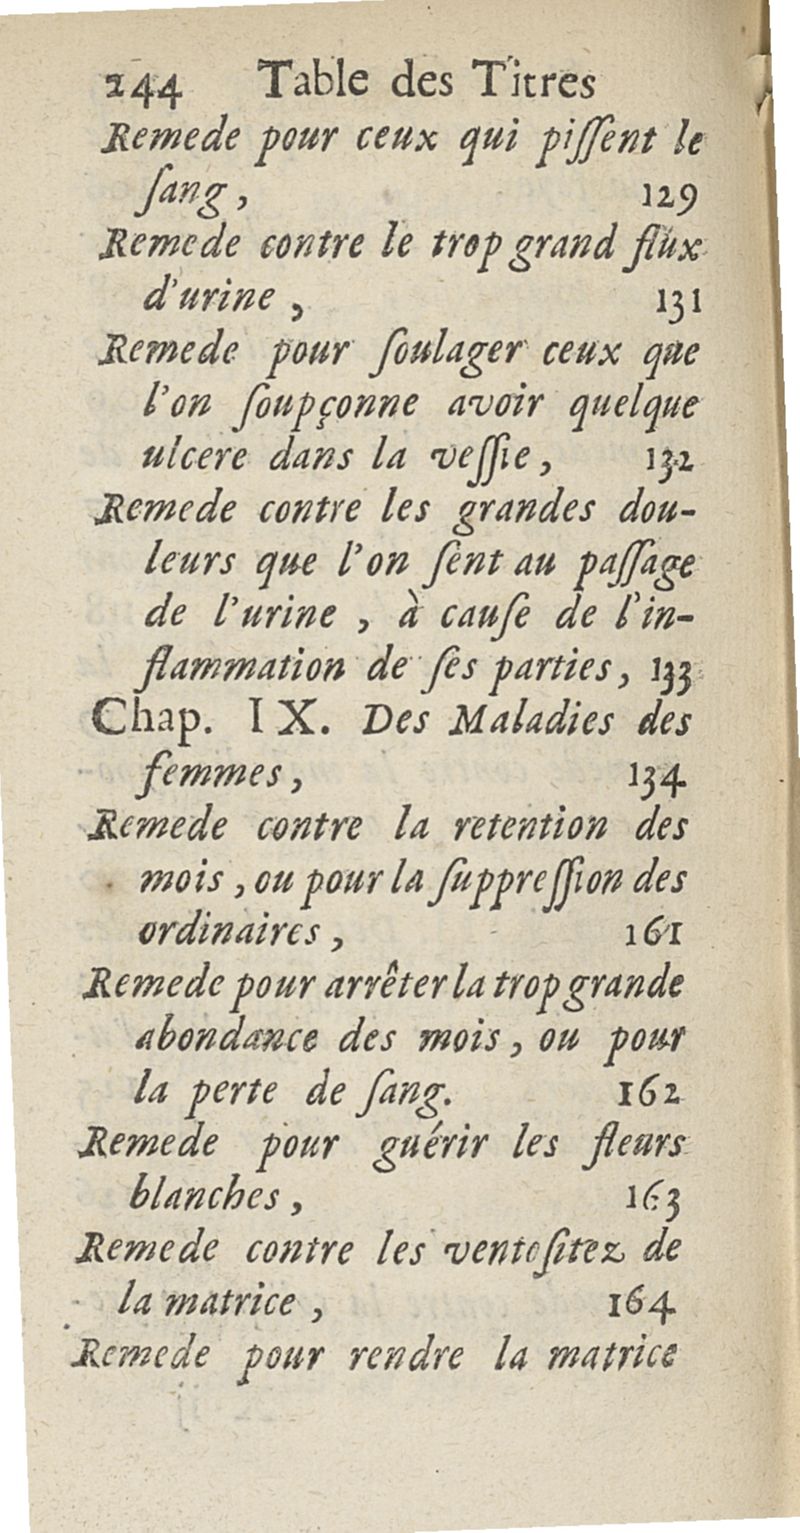 244 Table des Titres
Remede pour ceux qui piſſent le
ſang, 129
Remede contre le trop grand flux
d'urine, 131
Remede pour ſoulager ceux que
l'on ſoupçonne avoir quelque
ulcere dans la veſſie, 132
Remede contre les grandes dou-
leurs que l'on ſent au paſſage
de l'urine, à cauſe de l'in-
flammation de ſes parties, 133
Chap. IX. Des Maladies des
femmes, 134
Remede contre la retention des
mois, ou pour la ſuppreſſion des
ordinaires, 161
Remede pour arrêter la trop grande
abondance des mois, ou pour
la perte de ſang. 162
Remede pour guérir les fleurs
blanches, 163
Remede contre les ventoſitez de
la matrice, 164
Remede pour rendre la matrice